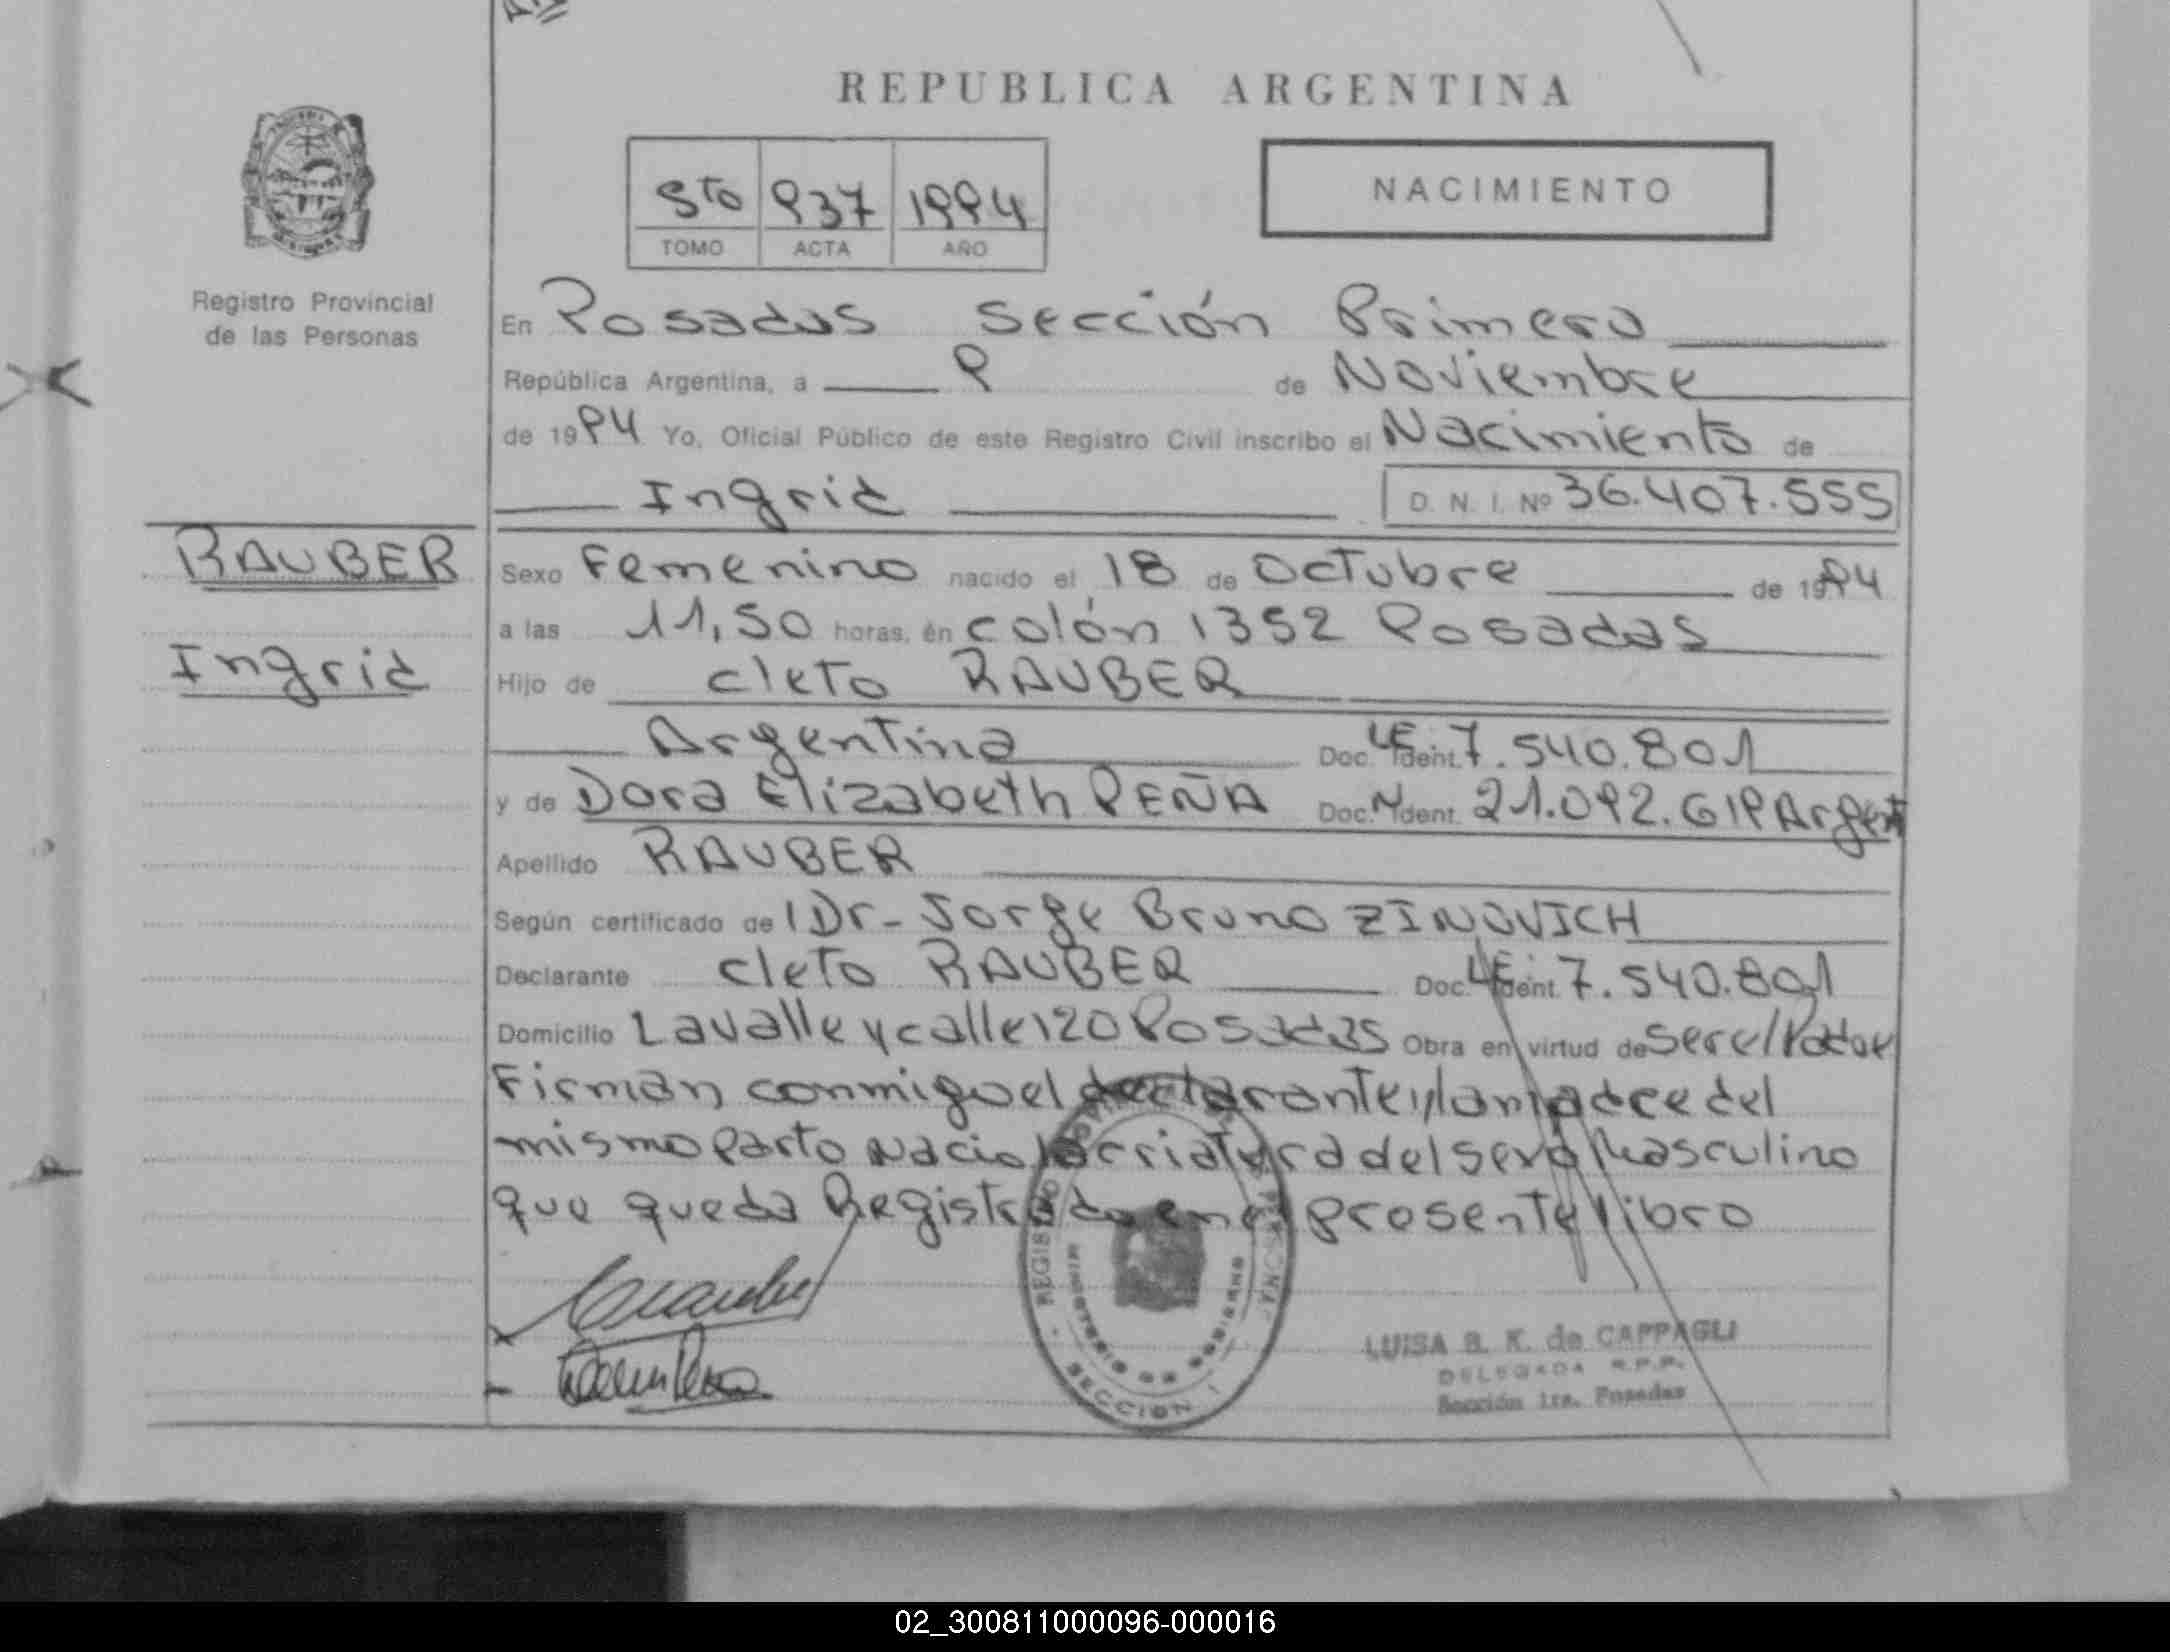 REPUBLICA ARGENTINA
5to 937 1994
TOMO ACTA AÑO
NACIMIENTO
Registro Provincial
de las Personas
En Posadas Sección Primera
República Argentina, a 9 de Noviembre
de 1994 Yo, Oficial Público de este Registro Civil inscribo el Nacimiento de
Ingrid D. N. I. Nº 36.407.555
RAUBER
Ingrid
Sexo Femenino nacido el 18 de Octubre de 1994
a las 11,50 horas, en colón 1352 Posadas
Hijo de cleto RAUBER
Argentina Doc. Ident. LE 7.540.801
y de Dora Elizabeth PEÑA Doc. Ident. 21.092.619 Argent
Apellido RAUBER
Según certificado de Dr- Jorge Bruno ZINOVICH
Declarante cleto RAUBER Doc. Ident. LE 7.540.801
Domicilio Lavalle y calle 120 Posadas Obra en virtud de ser el Padre
Firman conmigo el declarante y la madre del
mismo parto Nacio la criatura del sexo Masculino
que queda Registrado en el presente libro
REGISTRO
MINISTERIO DE GOBIERNO
SECCION 1
LUISA B. K. de CAPPAGLI
DELEGADA R.P.P.
Sección 1ra. Posadas
02_300811000096-000016